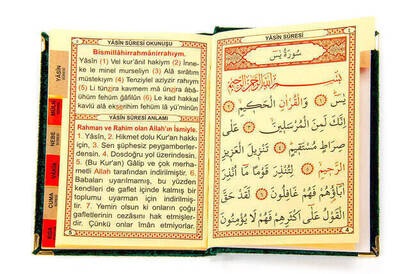 YÂSÎN SÛRESİ OKUNUŞU
Bismillâhirrahmânirrahıym.
Yâsîn (1) Vel kur'ânil hakiym (2) İnne-
ke le minel murseliyn (3) Alâ sırâtım
müstekıym (4) Tenziylel aziyzir rahıym
(5) Li tünzira kavmem mâ ünzira âbâ-
ühüm fehüm ğâfilûn (6) Le kad hakkal
kavlü alâ ekserihim fehüm lâ yü'minûn
YÂSÎN SÛRESİ ANLAMI
Rahman ve Rahim olan Allah'ın İsmiyle.
1. Yâsîn, 2. Hikmet dolu Kur'an hakkı
için, 3. Sen şüphesiz peygamberler-
densin. 4. Dosdoğru yol üzerindesin.
5. (Bu Kur'an) Gâlip ve çok merha-
metli Allah tarafından indirilmiştir. 6.
Babaları uyarılmamış, bu yüzden
kendileri de gaflet içinde kalmış bir
toplumu uyarman için indirilmiştir.
7. Yemin olsun ki onların çoğu
gafletlerinin cezasını hak etmişler-
dir. Çünkü onlar İman etmiyorlar.
YÂSÎN
MÜLK
NEBE
CUMA
YÂSÎN SÛRESİ
سُورَةُ يٰسٓ
بِسْمِ اللّٰهِ الرَّحْمٰنِ الرَّحِيمِ
يٰسٓ ﴿١﴾ وَالْقُرْاٰنِ الْحَكِيمِ ﴿٢﴾
اِنَّكَ لَمِنَ الْمُرْسَلِينَ ﴿٣﴾ عَلٰى
صِرَاطٍ مُسْتَقِيمٍ ﴿٤﴾ تَنْزِيلَ الْعَزِيزِ
الرَّحِيمِ ﴿٥﴾ لِتُنْذِرَ قَوْمًا مَٓا اُنْذِرَ
اٰبَٓاؤُهُمْ فَهُمْ غَافِلُونَ ﴿٦﴾ لَقَدْ حَقَّ
الْقَوْلُ عَلٰٓى اَكْثَرِهِمْ فَهُمْ لَا يُؤْمِنُونَ
4